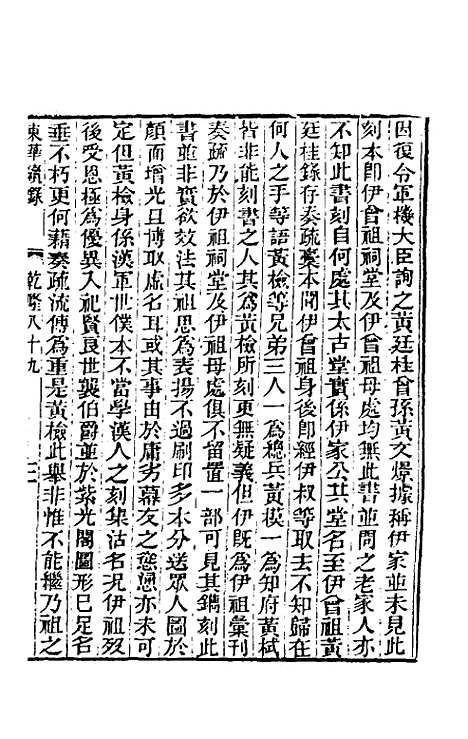 因復令軍機大臣詢之黃廷桂曾孫黃文燝據稱伊家並未見此
刻本卽伊曾祖祠堂及伊曾祖母處均無此書並問之老家人亦
不知此書刻自何處其太古堂實係伊家公共堂名至伊曾祖黃
廷桂錄存奏疏藁本聞伊曾祖身後卽經伊叔等取去不知歸在
何人之手等語黃檢等兄弟三人一爲總兵黃模一爲知府黃栻
皆非能刻書之人其爲黃檢所刻更無疑義但伊既爲伊祖彙刊
奏疏乃於伊祖祠堂及伊祖母處俱不留置一部可見其鐫刻此
書並非實欲效法其祖思爲表揚不過刷印多本分送眾人圖於
顏面增光且博取虛名耳或其事由於庸劣幕友之慫恿亦未可
定但黃檢身係漢軍世僕本不當學漢人之刻集沽名况伊祖歿
後受恩極爲優異入祀賢良世襲伯爵並於紫光閣圖形已足名
垂不朽更何藉奏疏流傳爲重是黃檢此舉非惟不能繼乃祖之
東華續錄 乾隆八十九 二